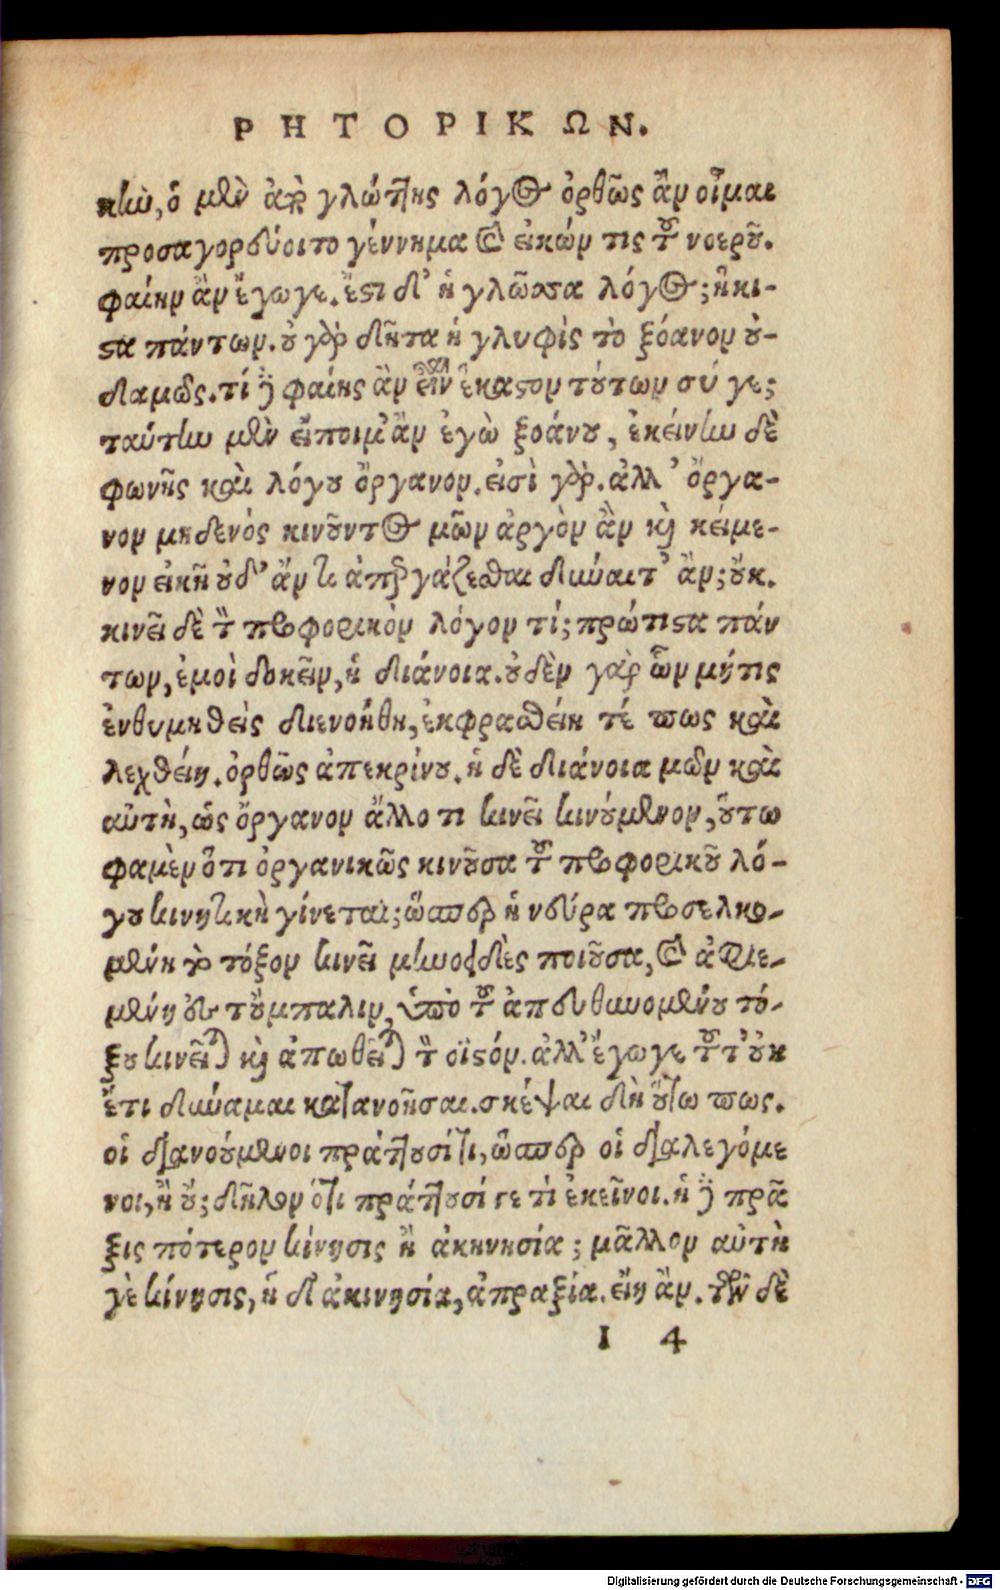 ΡΗΤΟΡΙΚΩΝ.
κὴν, ὁ μὲν ἀπὸ γλώττης λόγος ὀρθῶς ἂν οἶμαι
προσαγορεύοιτο γέννημα καὶ εἰκών τις τοῦ νοεροῦ.
φαίην ἂν ἔγωγε. ἔστι δ' ἡ γλῶσσα λόγος; ἥκι-
στα πάντων. οὐ γὰρ δῆτα ἡ γλυφὶς τὸ ξόανον οὐ-
δαμῶς. τί δὲ φαίης ἂν εἶναι ἕκαστον τούτων σύ γε;
ταύτην μὲν εἴποιμ' ἂν ἐγὼ ξοάνου, ἐκείνην δὲ
φωνῆς καὶ λόγου ὄργανον. εἰσὶ γὰρ. ἀλλ' ὄργα-
νον μηδενὸς κινοῦντος μῶν ἀργὸν ἂν καὶ κείμε-
νον εἰκῆ οὐδ' ἄν τι ἀπεργάζεσθαι δύναιτ' ἄν; οὔκ.
κινεῖ δὲ τὸν προφορικὸν λόγον τί; πρώτιστα πάν
των, ἐμοὶ δοκεῖν, ἡ διάνοια. οὐδὲν γὰρ ὧν μή τις
ἐνθυμηθεὶς διενοήθη, ἐκφρασθείη τέ πως καὶ
λεχθείη. ὀρθῶς ἀπεκρίνου. ἡ δὲ διάνοια μῶν καὶ
αὐτὴ, ὡς ὄργανον ἄλλο τι κινεῖ κινούμενον, οὕτω
φαμὲν ὅτι ὀργανικῶς κινοῦσα τοῦ προφορικοῦ λό-
γου κινητικὴ γίνεται; ὥσπερ ἡ νευρὰ προσελκο-
μένη τὸ τόξον κινεῖ μηνοειδὲς ποιοῦσα, καὶ ἀφιε-
μένη δὲ τοὔμπαλιν, ὑπὸ τοῦ ἀπευθυνομένου τό-
ξου κινεῖται καὶ ἀπωθεῖται τὸν οἰστόν. ἀλλ' ἔγωγε τοῦτ' οὐκ
ἔτι δύναμαι κατανοῆσαι. σκέψαι δὴ οὕτω πως.
οἱ διανούμενοι πράττουσί τι, ὥσπερ οἱ διαλεγόμε
νοι, ἢ οὔ; δῆλον ὅτι πράττουσί γε τὶ ἐκεῖνοι. ἡ δὲ πρᾶ
ξις πότερον κίνησις ἢ ἀκηνησία; μᾶλλον αὐτὴ
γὲ κίνησις, ἡ δ' ἀκινησία, ἀπραξία. εἴη ἄν. τῶν δὲ
I 4
Digitalisierung gefördert durch die Deutsche Forschungsgemeinschaft - DFG